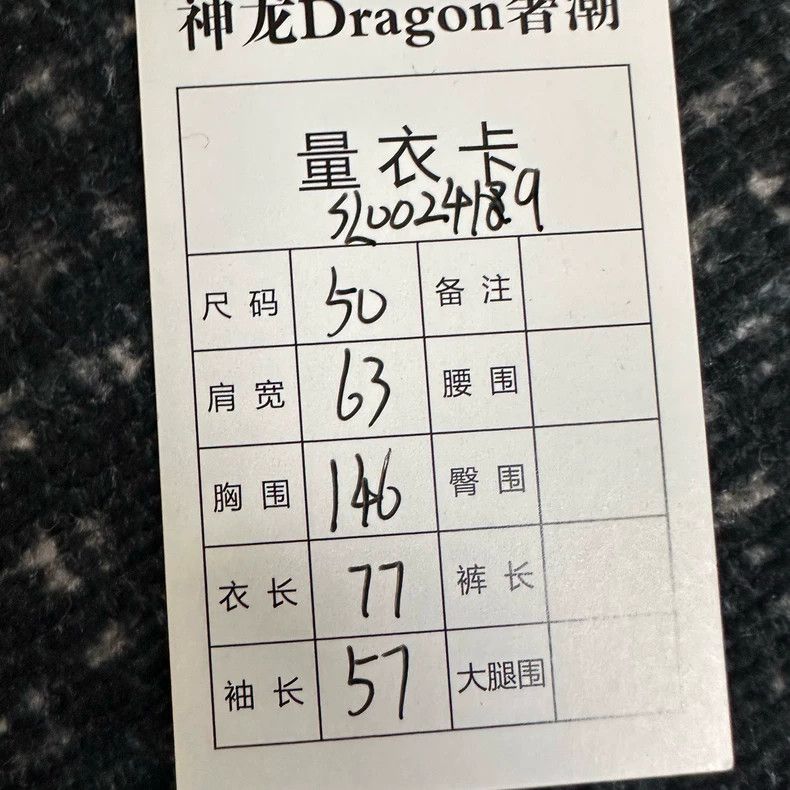 神龙Dragon著潮
量衣卡
SL0024189
尺码 50 备注
肩宽 63 腰围
胸围 146 臀围
衣长 77 裤长
袖长 57 大腿围